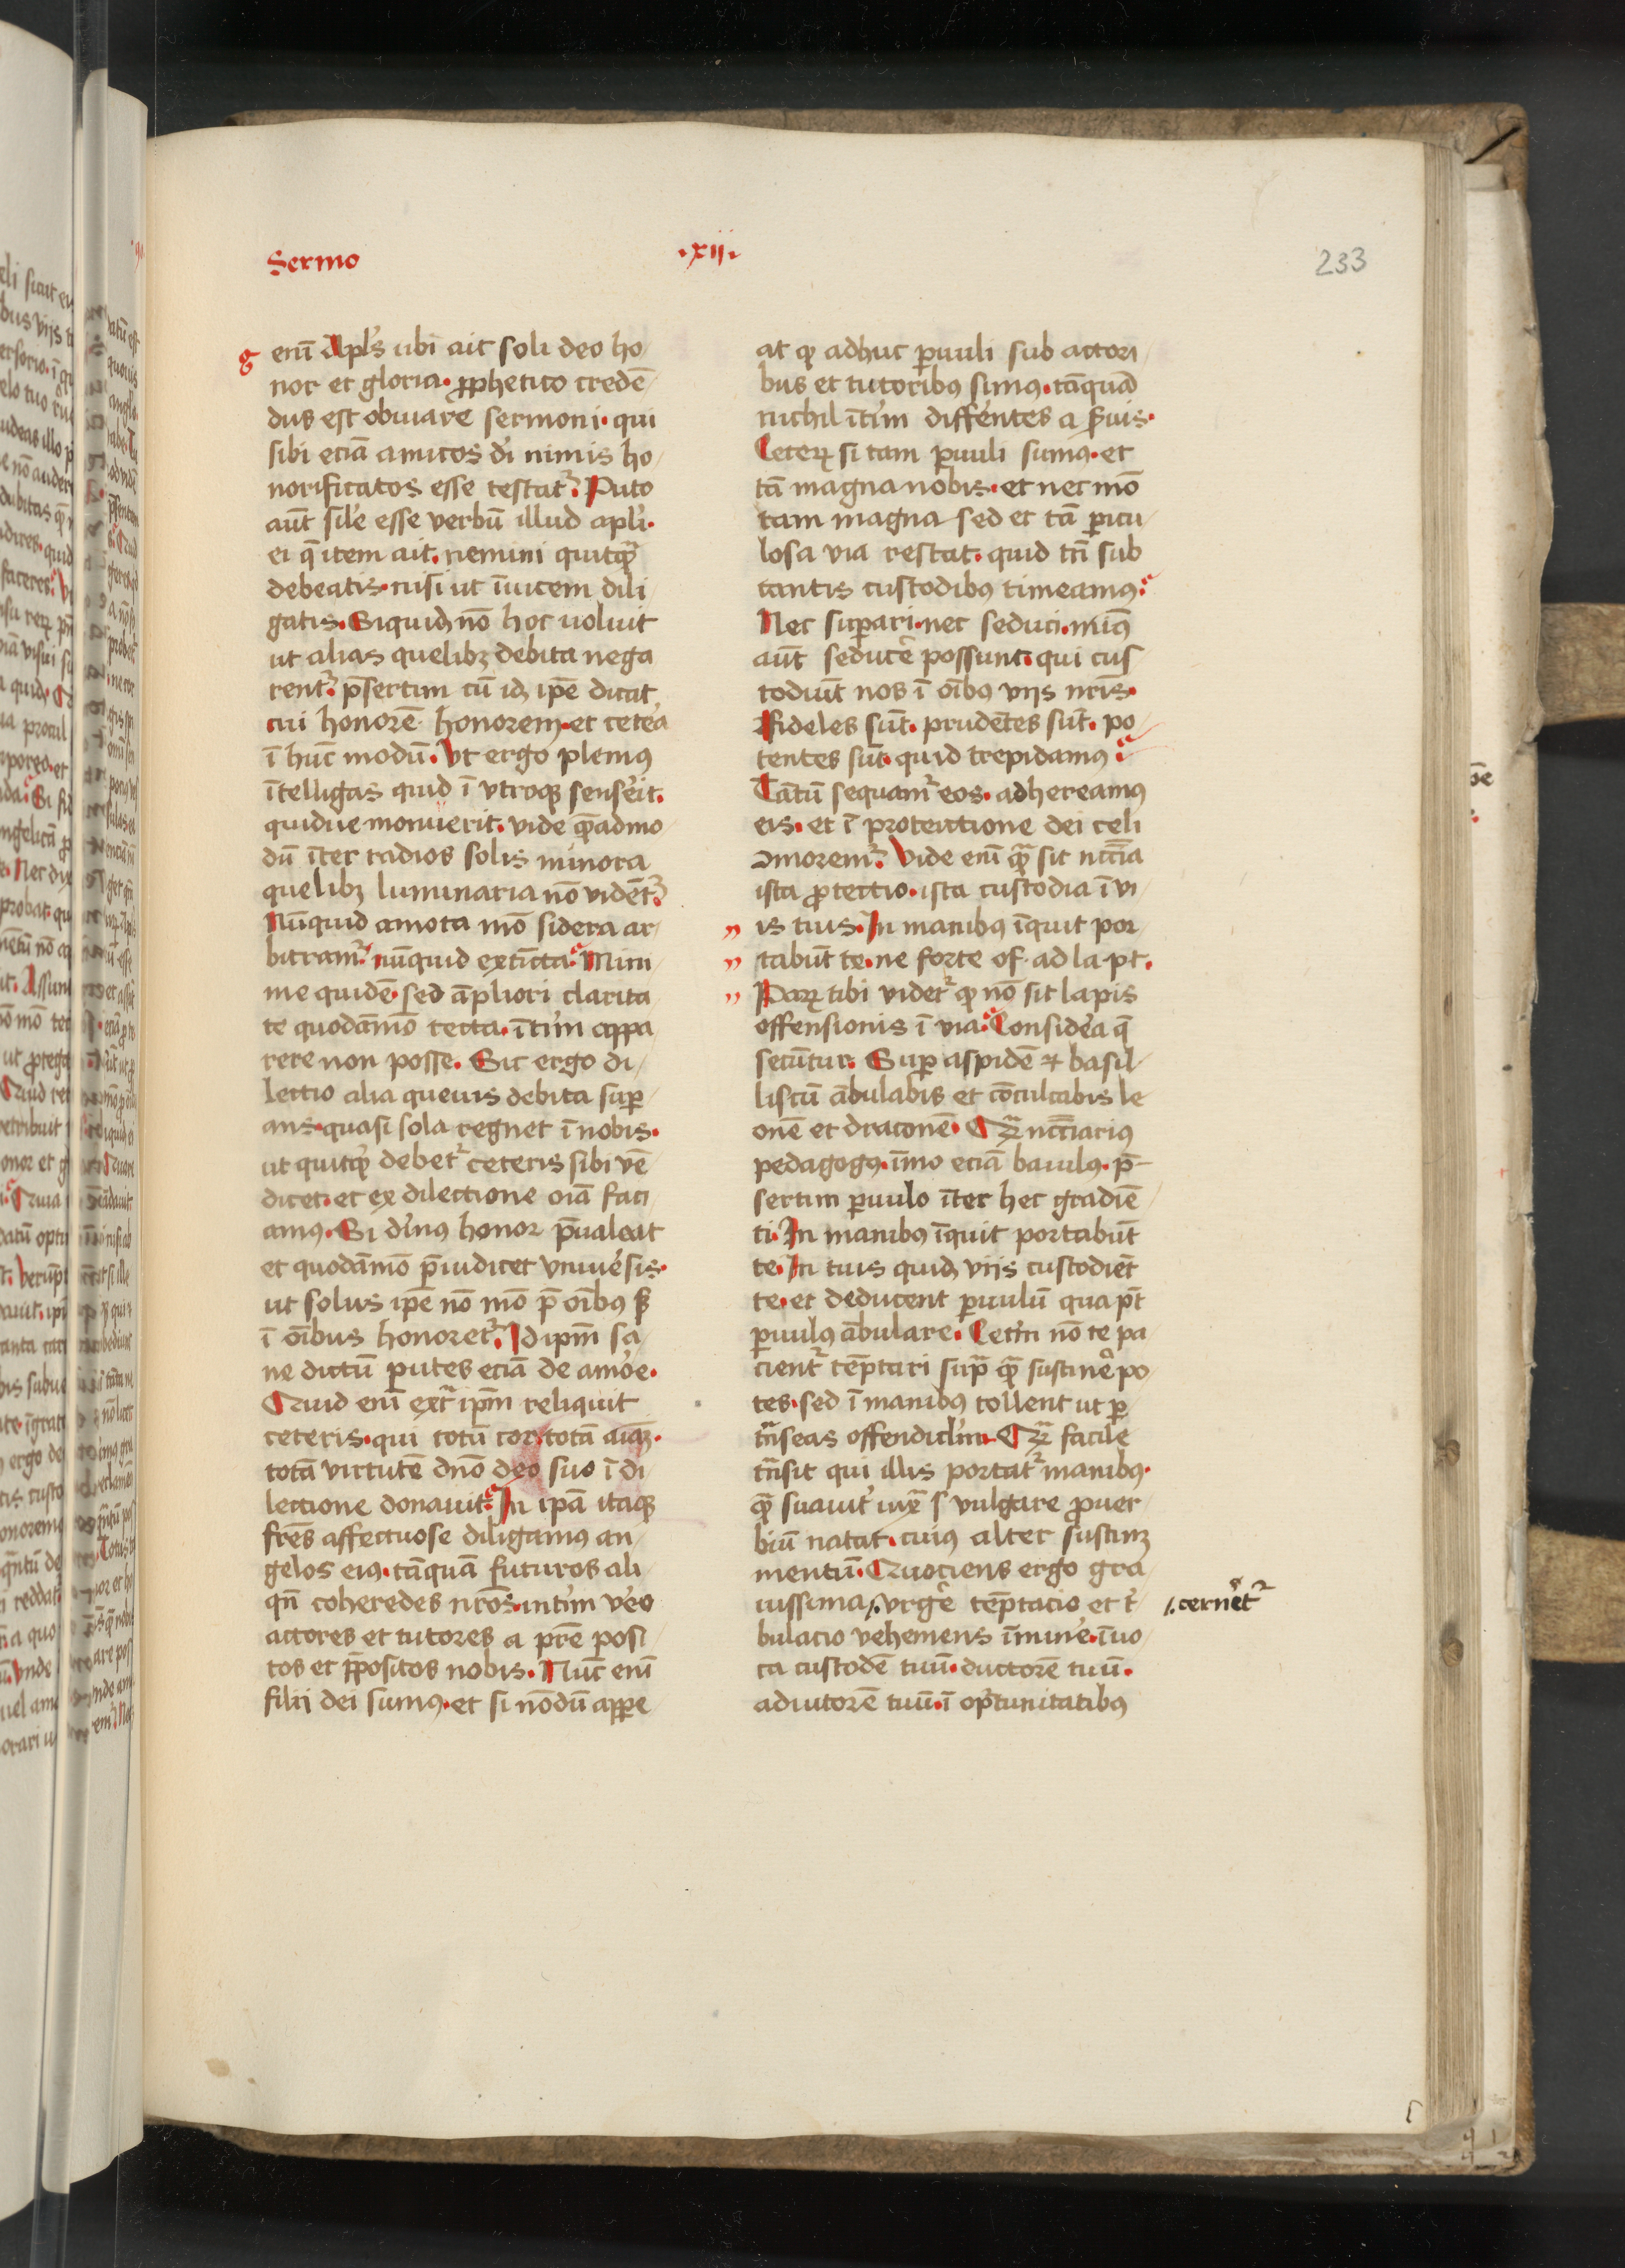 Sermo
.xii.
233
g
enī Apl's ubi ait soli deo ho
nor et gloria. ꝓphetico credē
dus est obuiare sermoni. qui
sibi eciā amicos di nimis ho
norificatos esse testat᷑. Puto
aūt sil'e esse verbū illud apl'i.
ei q̄ item ait. nemini quitqᷓ
debeatis. nisi ut īuicem dili
gatis. Siquid nō hoc uoluit
ut alias quelibꝫ debita nega
rent᷑. p̄sertim cū idꝫ ip̄e dicat
cui honorē honorem. et cete'a
ī hūc modū. Ut ergo pleniꝰ
ītelligas quid ī vtroqꝫ sense'it.
quidue monuerit. vide qᷓeadmo
dū īter radios solis minora
quelibꝫ luminaria nō vident᷑.
Nūquid amota mō sidera ar
bitram᷑. nūquid extīcta. Mini
me quidē. sed āpliori clarita
te quodāmō tecta. īt'im appa
rere non posse. Sic ergo di
lectio alia queuis debita suꝑ
ans. quasi sola regnet ī nobis.
ut quitqᷓ debet᷑ ceteris sibi vē
dicet. et ex dilectione oīa faci
amꝰ. Si diuinꝰ honor p̄ualeat
et quodāmō p̄iudicet vniue'sis.
ut solus ip̄e nō mō p̄ oībꝰ sꝫ
ī oībus honoret᷑. Id ip̄m sa
ne dictū putes eciā de amo'e.
Quid enī extᷓ ip̄m reliquit
ceteris. qui totū cor. totā aīaꝫ.
totā virtutē dn̄o deo suo ī di
lectione donauit. In ip̄a itaqꝫ
fr̄es affectuose diligamus an
gelos eiꝰ. tāquā futuros ali
qn̄ coheredes nr̄os. int'im ve'o
actores et tutores a pr̄e posi
tos et p̄positos nobis. Nūc enī
filii dei sumꝰ. et si nōdū appe
at ꝙ adhuc ꝑuuli sub actori
bus et tutoribꝰ simus. tāquā
nichil īt'im diffe'entes a s'uis.
Ceteꝝ si tam ꝑuuli sumꝰ. et
tā magna nobis. et nec mō
tam magna sed et tā ꝑicu
losa via restat. quid tn̄ sub
tantis custodibꝰ timeamꝰ.
Nec suꝑari. nec seduci. minꝰ
aūt seducē possunt. qui cus
todiūt nos ī oībꝰ viis nr̄is.
Fideles sūt. prudētes sūt. po
tentes sūt. quid trepidamꝰ.
Tātū sequam᷑ eos. adhereamꝰ
eis. et ī protectione dei celi
ꝯmorem᷑. Vide enī qᷓ sit nec̄cīa
ista ꝓtectio. ista custodia ī vi
is tuis. In manibꝰ īquit por
tabūt te. ne forte of. ad la. pt.
Paꝝ tibi videt᷑ ꝙ nō sit lapis
offensionis ī via. Conside'a q̄
secūtur. Suꝑ aspidē et basil
liscū ābulabis et cōculcabis le
onē et draconē. Qᷓꝫ nec̄cīariꝰ
pedagogꝰ. īmo eciā baiulꝰ. p̄
sertim ꝑuulo īter hec gradiē
ti. In manibꝰ īquit portabūt
te. In tuis quidꝫ viis custodiēt
te. et deducent ꝑuulū qua pt̄
ꝑuulꝰ ābulare. Cet'm nō te pa
cient᷑ tēptari supᷓ qᷓ sustine' po
tes. sed ī manibꝰ tollent ut ꝑ
tᷓnseas offendiclm̄. Qᷓꝫ facile
tᷓnsit qui illis portat᷑ manibꝰ.
qᷓ suauit' iuxᷓ vulgare ꝓuer
biū natat. cuiꝰ alter sustinꝫ
mentū. Quociens ergo gra
uissima ⁒ vrgē tēptacio et t'
⁒ cernet᷑
bulacio vehemens īmine'. īuo
ca custodē tuū. ductorē tuū.
adiutorē tuū. ī op'tunitatibꝰ